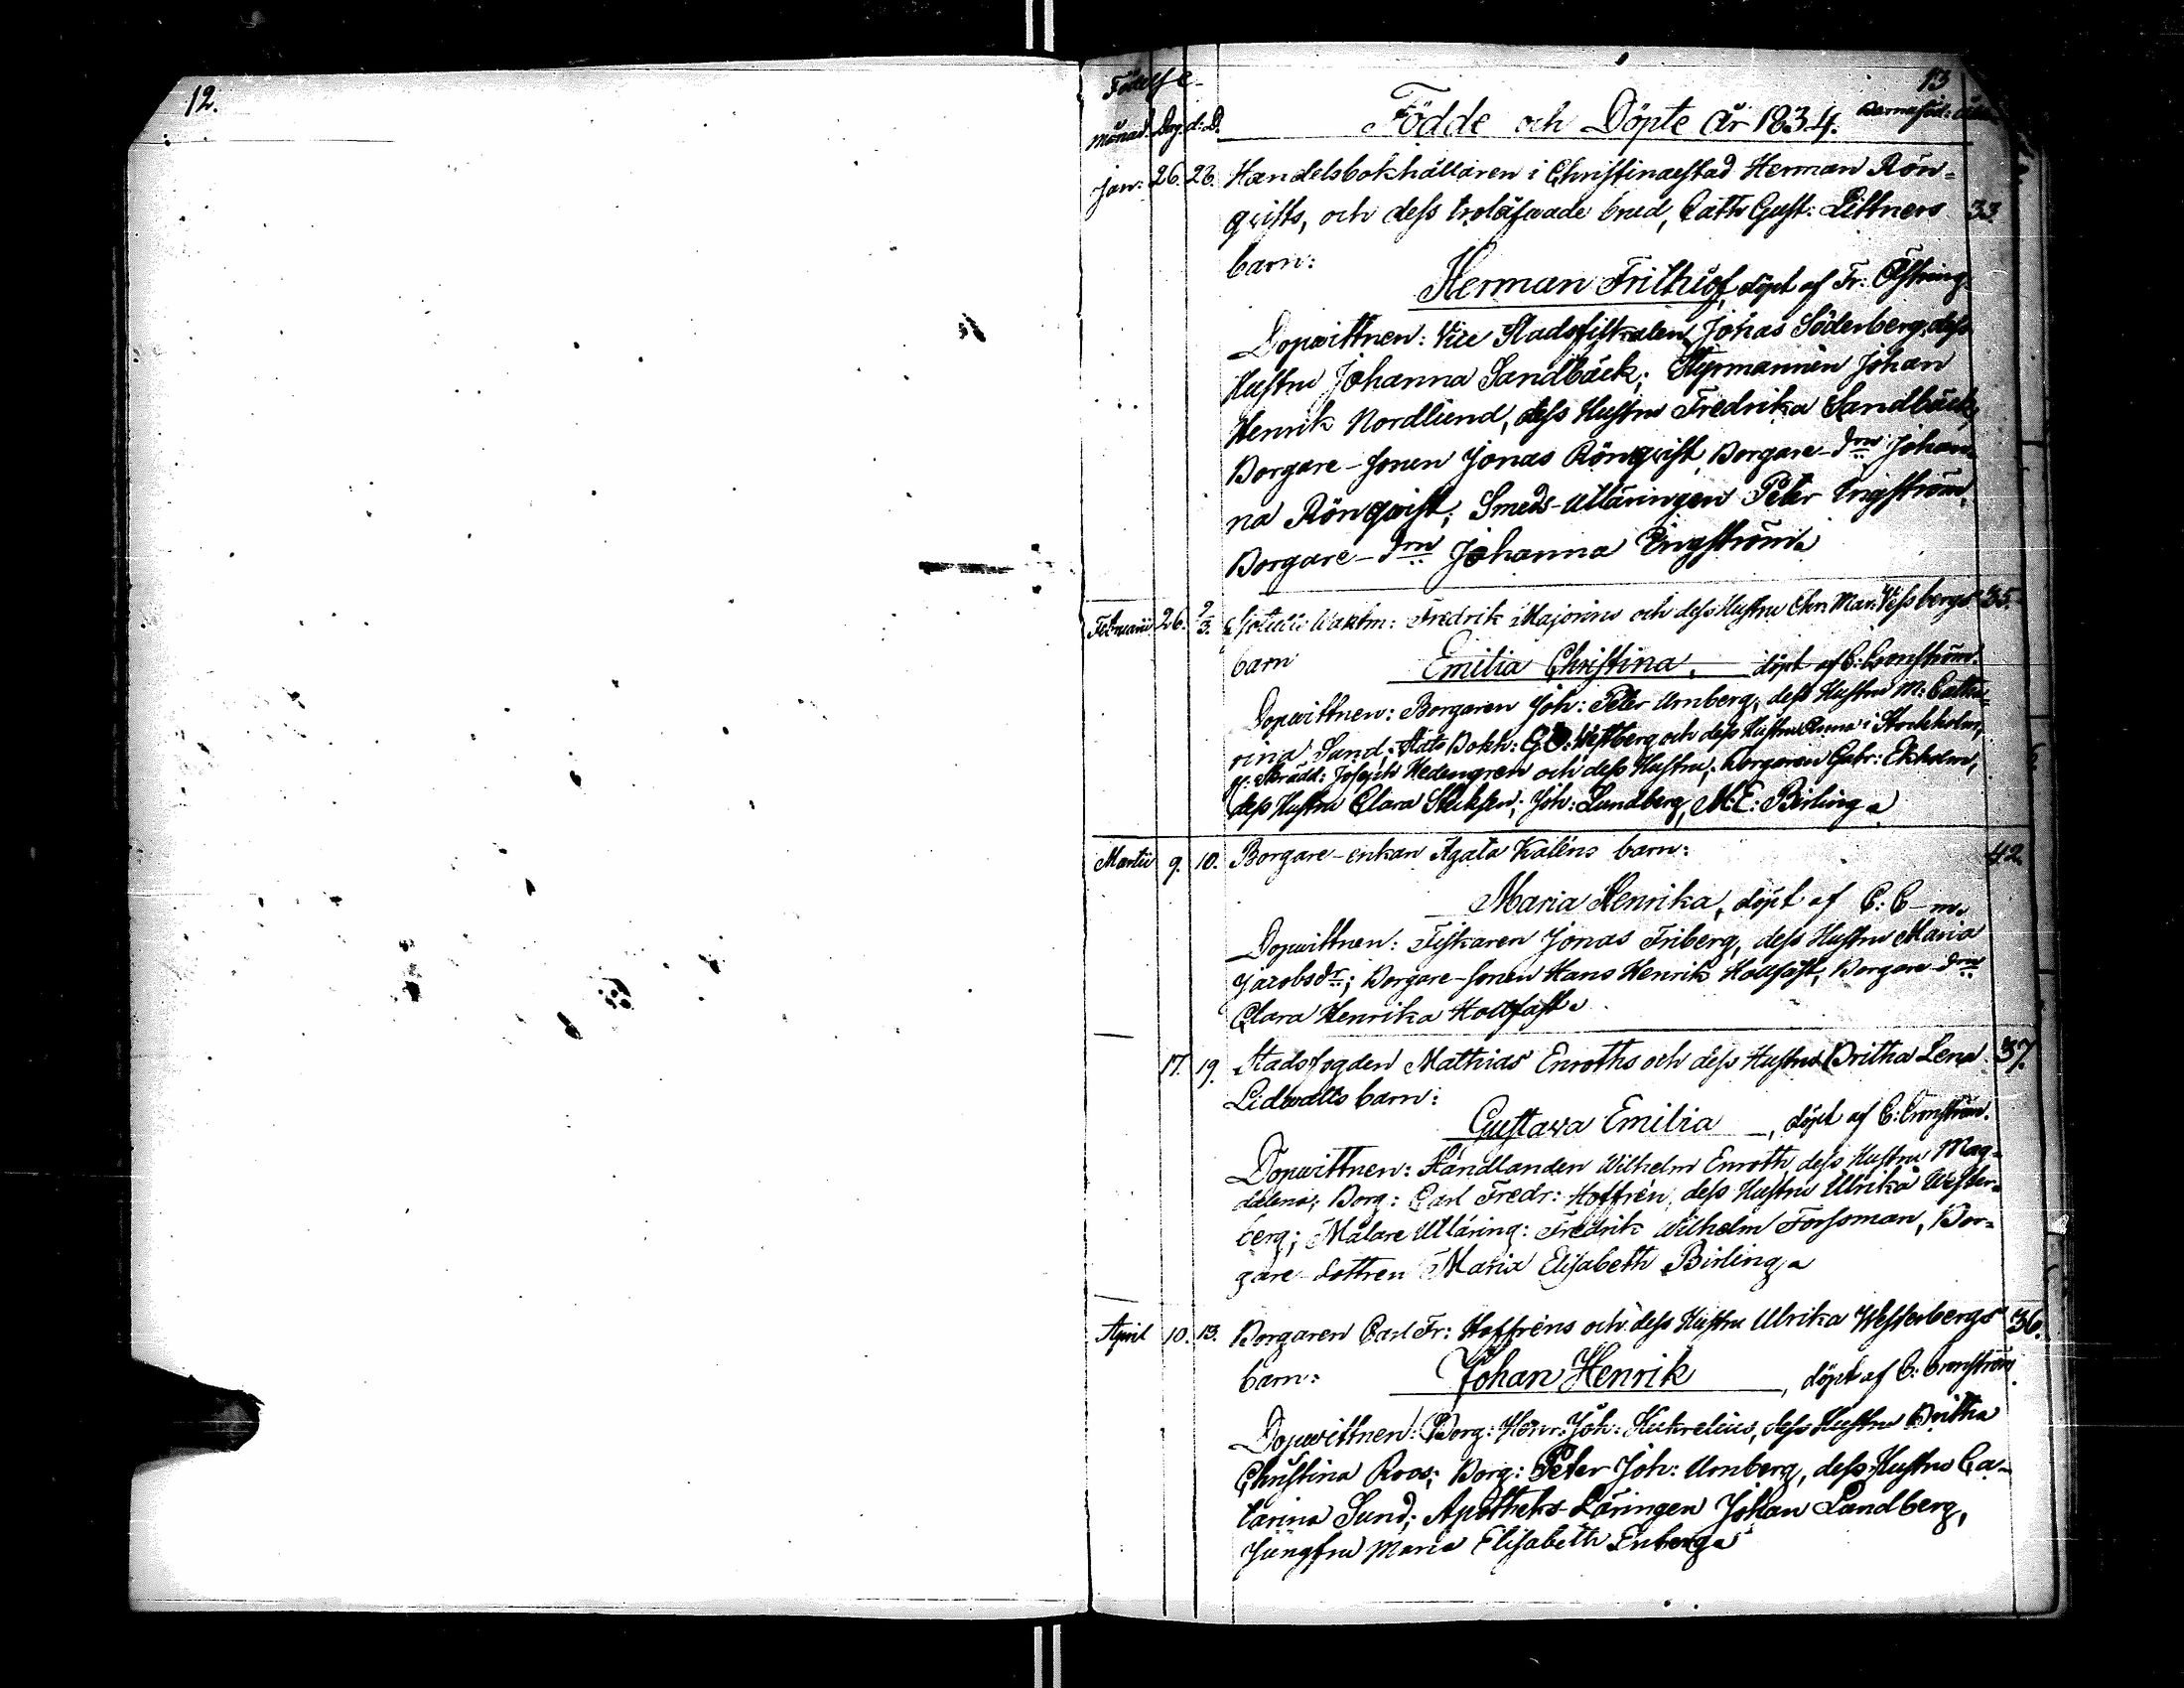 12.
13
Födelse-
Månad. Dag. d:D.
Födde och Döpte År 1834.
Jan: 26. 28. Handelsbokhållaren i Christinaestad Herman Rön-
qvists, och dess trolåfwade brud, Cath Gust: Littners 33
barn:
Herman Frithiof, döpt af Fr: Östring
Dopwittnen: Vice Stadsfiskalen Johas Söderberg, dess
Hustru Johanna Sandbäck; Styrmannen Johan
Henrik Nordlund, dess Hustru Fredrika Sandbäck,
Borgare-sonen Jonas Rönqvist, Borgare-drn Johan-
na Rönqwist; Smeds-Utläringen Peter Engström,
Borgare-drn Johanna Engström.
Februarii 26. 2/3. Waktm: Fredrik Majorins och dess Hustru Chr: Mar: Wessbergs 35.
barn
Emilia Christina, döpt af C: Cronström.
Dopwittnen: Borgaren Joh: Peter Urnberg, dess Hustru M: Catha-
rina Sund; Stads Bokh: Westberg och dess Hustru Anna i Stockholm,
Skrädd: Joseph Hedengren och dess Hustru; Borgaren Gabr: Ekholm,
dess Hustru Clara; Joh: Lundberg, M: E: Birling.
Martii 9. 10. Borgare-enkan Agata Kaléns barn: 42.
Maria Henrika, döpt af C: C-m.
Dopwittnen: Fiskaren Jonas Friberg, dess Hustru Maria
Jacobsdr; Borgare-sonen Hans Henrik Hollfast, Borgare-drn
Clara Henrika Hollfast.
17. 19. Stadsfogden Mathias Enroths och dess Hustru Britha Lena 37.
Lidwalls barn:
Gustava Emilia, döpt af C: Cronström.
Dopwittnen: Handlanden Wilhelm Enroth dess Hustru Mag-
dalena; Borg: Carl Fredr: Hoffrén, dess Hustru Ulrika Wester-
berg; Målare Utläring: Fredrik Wilhelm Forssman, Bor-
gare-dottren Maria Elisabeth Birling.
April 10. 13. Borgaren Carl Fr: Hoffréns och dess Hustru Ulrika Westerbergs 36.
barn: Johan Henrik, döpt af C: Cronström
Dopwittnen: Borg: Henr: Joh:, dess Hustru Britha
Christina Roos; Borg: Peter Joh: Urnberg, dess Hustru Ca-
tarina Sund; Apotheks-Läringen Johan Lundberg,
Jungfru Maria Elisabeth Enberg.